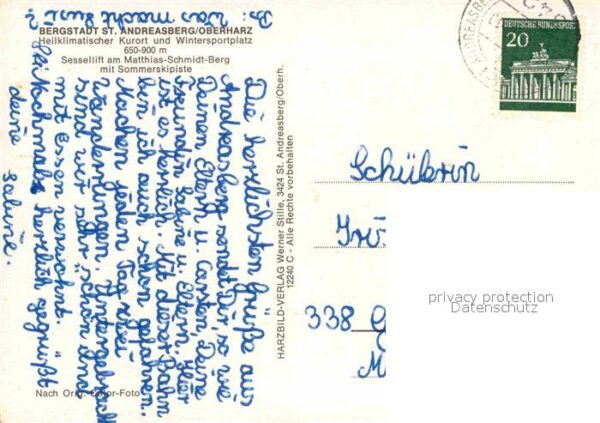 Ps: Was macht Susi?
BERGSTADT ST. ANDREASBERG/OBERHARZ
Heilklimatischer Kurort und Wintersportplatz
650-900 m
Sessellift am Matthias-Schmidt-Berg
mit Sommerskipiste
Die herzlichsten Grüße aus
Andreasberg sendet Dir, so wie
Deinen Eltern u. Carsten Deine
Freundin Sabine u. Eltern. Hier
ist es herrlich. Mit dieser Bahn
bin ich auch schon gefahren.
Machen jeden Tag zwei
Wanderungen. Untergebracht
sind wir sehr schön und
mit Essen verwöhnt.
Seid nochmals herzlich gegrüßt
deine Sabine.
Nach Orig. Color-Foto
HARZBILD-VERLAG Werner Stille, 3424 St. Andreasberg/Oberh.
12240 C - Alle Rechte vorbehalten
DEUTSCHE BUNDESPOST
20
Schülerin
338
privacy protection
Datenschutz